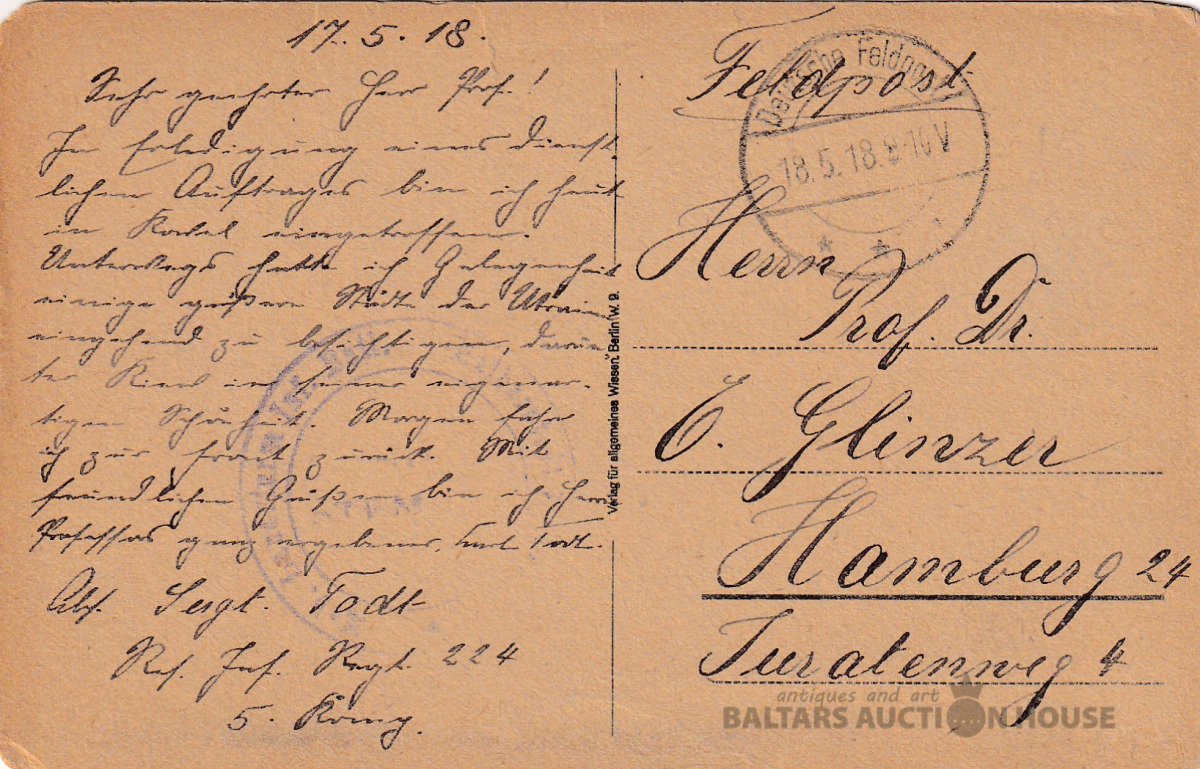 17.5.18.
Sehr geehrter Herr Prof.!
In Erledigung eines dienst-
lichen Auftrages bin ich heut
in Kowel eingetroffen.
Unterwegs hatte ich Gelegenheit
einige größere Städte der Ukraine
eingehend zu besichtigen, darun-
ter Kiew in seiner eigenar-
tigen Schönheit. Morgen fahre
ich zur Front zurück. Mit
freundlichen Grüßen bin ich Herrn
Professors ganz ergebener, Todt.
Abs. Sergt. Todt
Res. Inf. Regt. 224
5. Komp.
Verlag für allgemeines Wissen, Berlin W. 9.
Feldpost
Deutsche Feldpost
18.5.18. 9-10 V
Herrn
Prof. Dr.
E. Glinzer
Hamburg 24
Immenhof
antiques and art
BALTARS AUCTION HOUSE